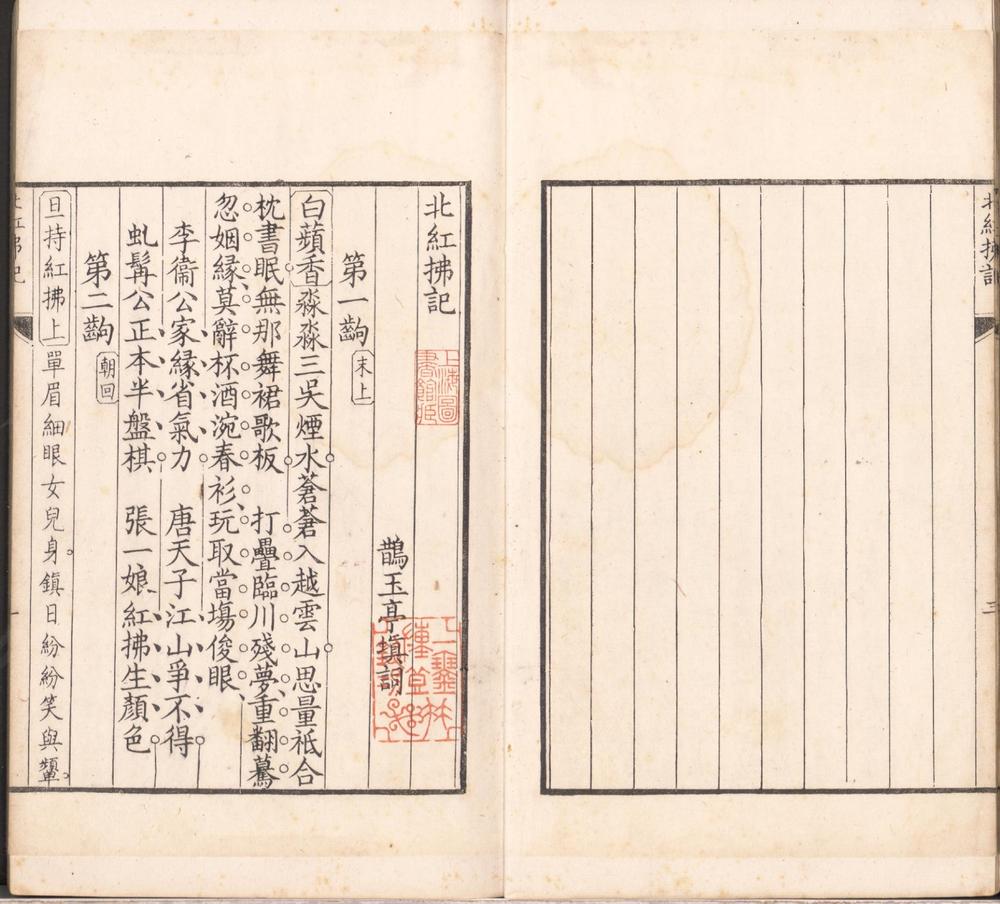 北紅拂記
三
北紅拂記
上海圖書館藏
鵲玉亭塡詞
第一齣 末上
白蘋香淼淼三吳煙水蒼蒼入越雲山思量祗合
枕書眠無那舞裙歌板 打疊臨川殘夢重翻驀
忽姻緣莫辭杯酒涴春衫玩取當場俊眼
李衞公家緣省氣力 唐天子江山爭不得
虬髯公正本半盤棋 張一娘紅拂生顏色
第二齣 朝回
旦持紅拂上單眉細眼女兒身鎮日紛紛笑與顰
北紅拂記
一